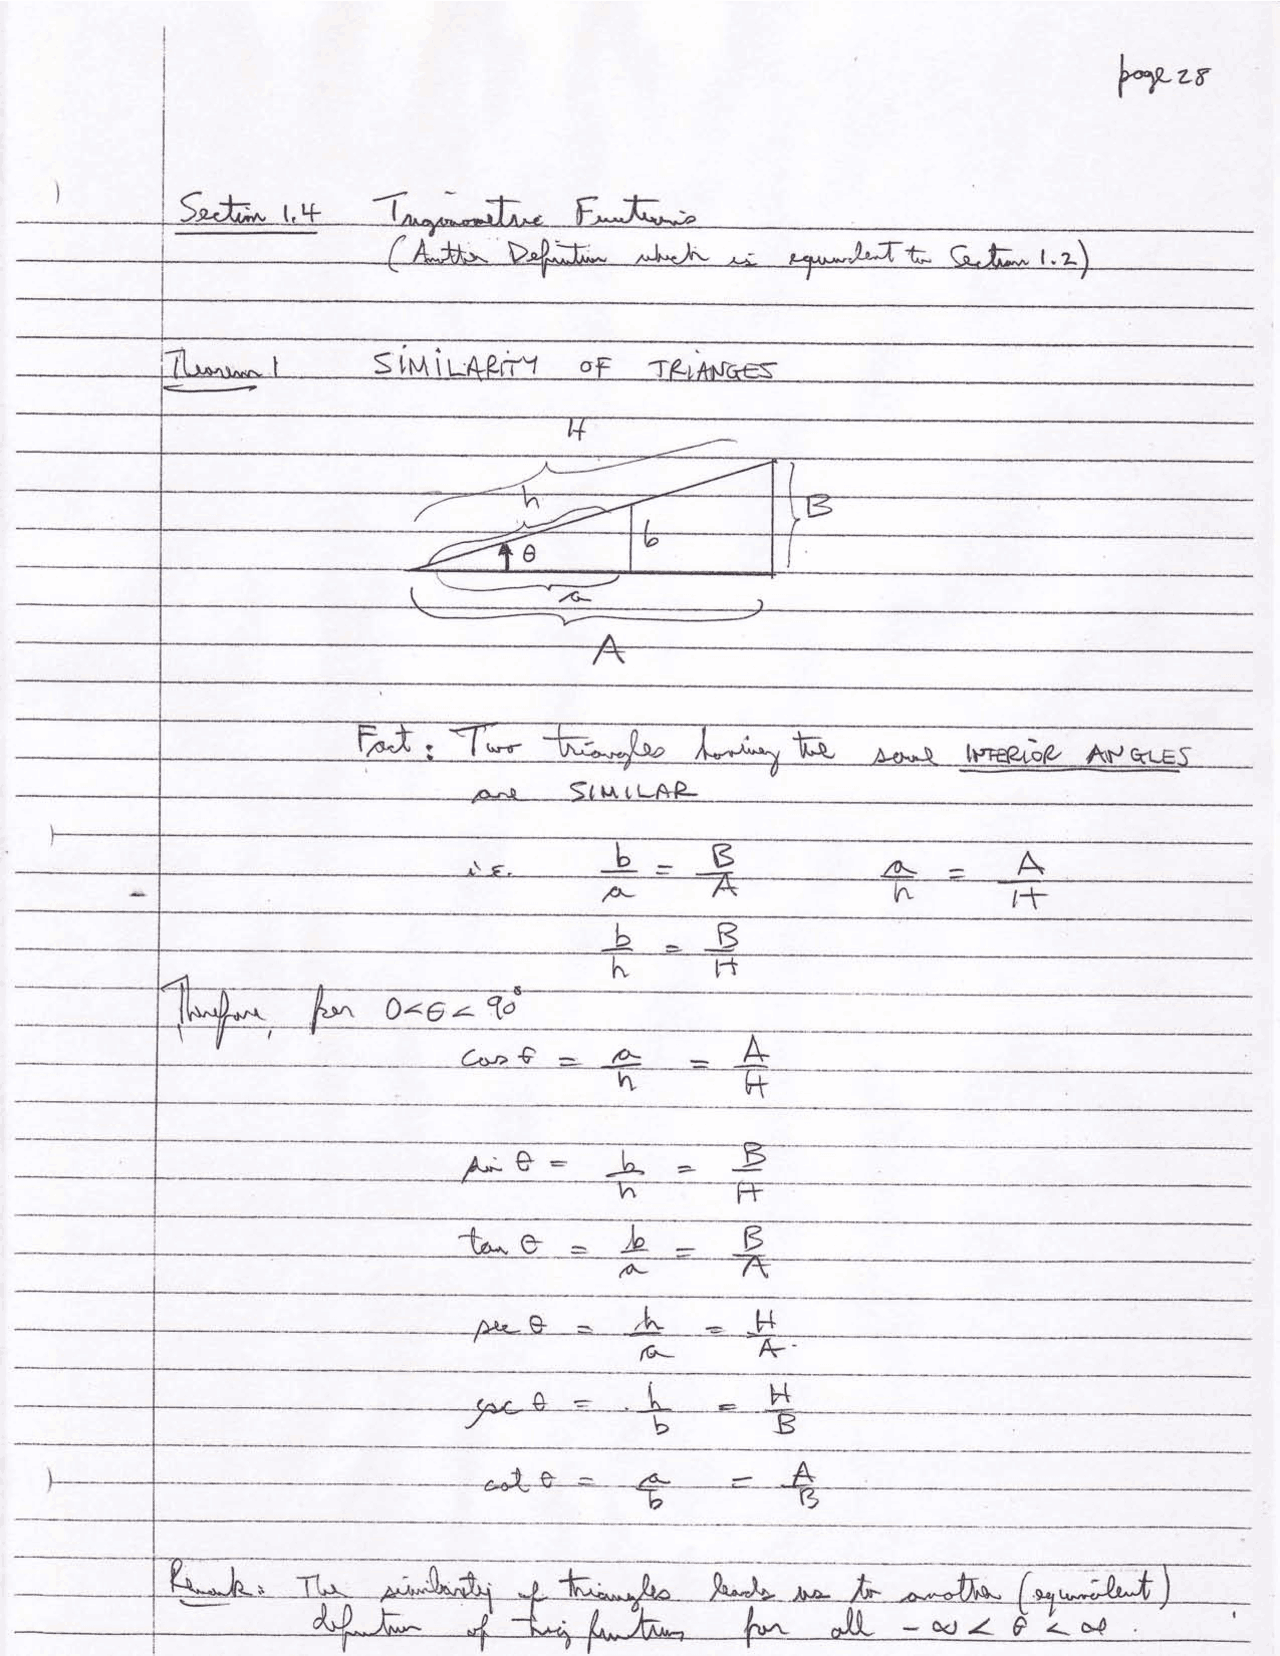 page 28
Section 1.4 Trigonometric Functions
(Another Definition which is equivalent to Section 1.2)
Theorem 1 SIMILARITY OF TRIANGES
H
h
B
b
θ
a
A
Fact: Two triangles having the same INTERIOR ANGLES
are SIMILAR
i.e. b/a = B/A a/h = A/H
b/h = B/H
Therefore, for 0<θ<90°
cos θ = a/h = A/H
sin θ = b/h = B/H
tan θ = b/a = B/A
sec θ = h/a = H/A
csc θ = h/b = H/B
cot θ = a/b = A/B
Remark: The similarity of triangles leads us to another (equivalent)
definition of trig functions for all -∞ < θ < ∞.